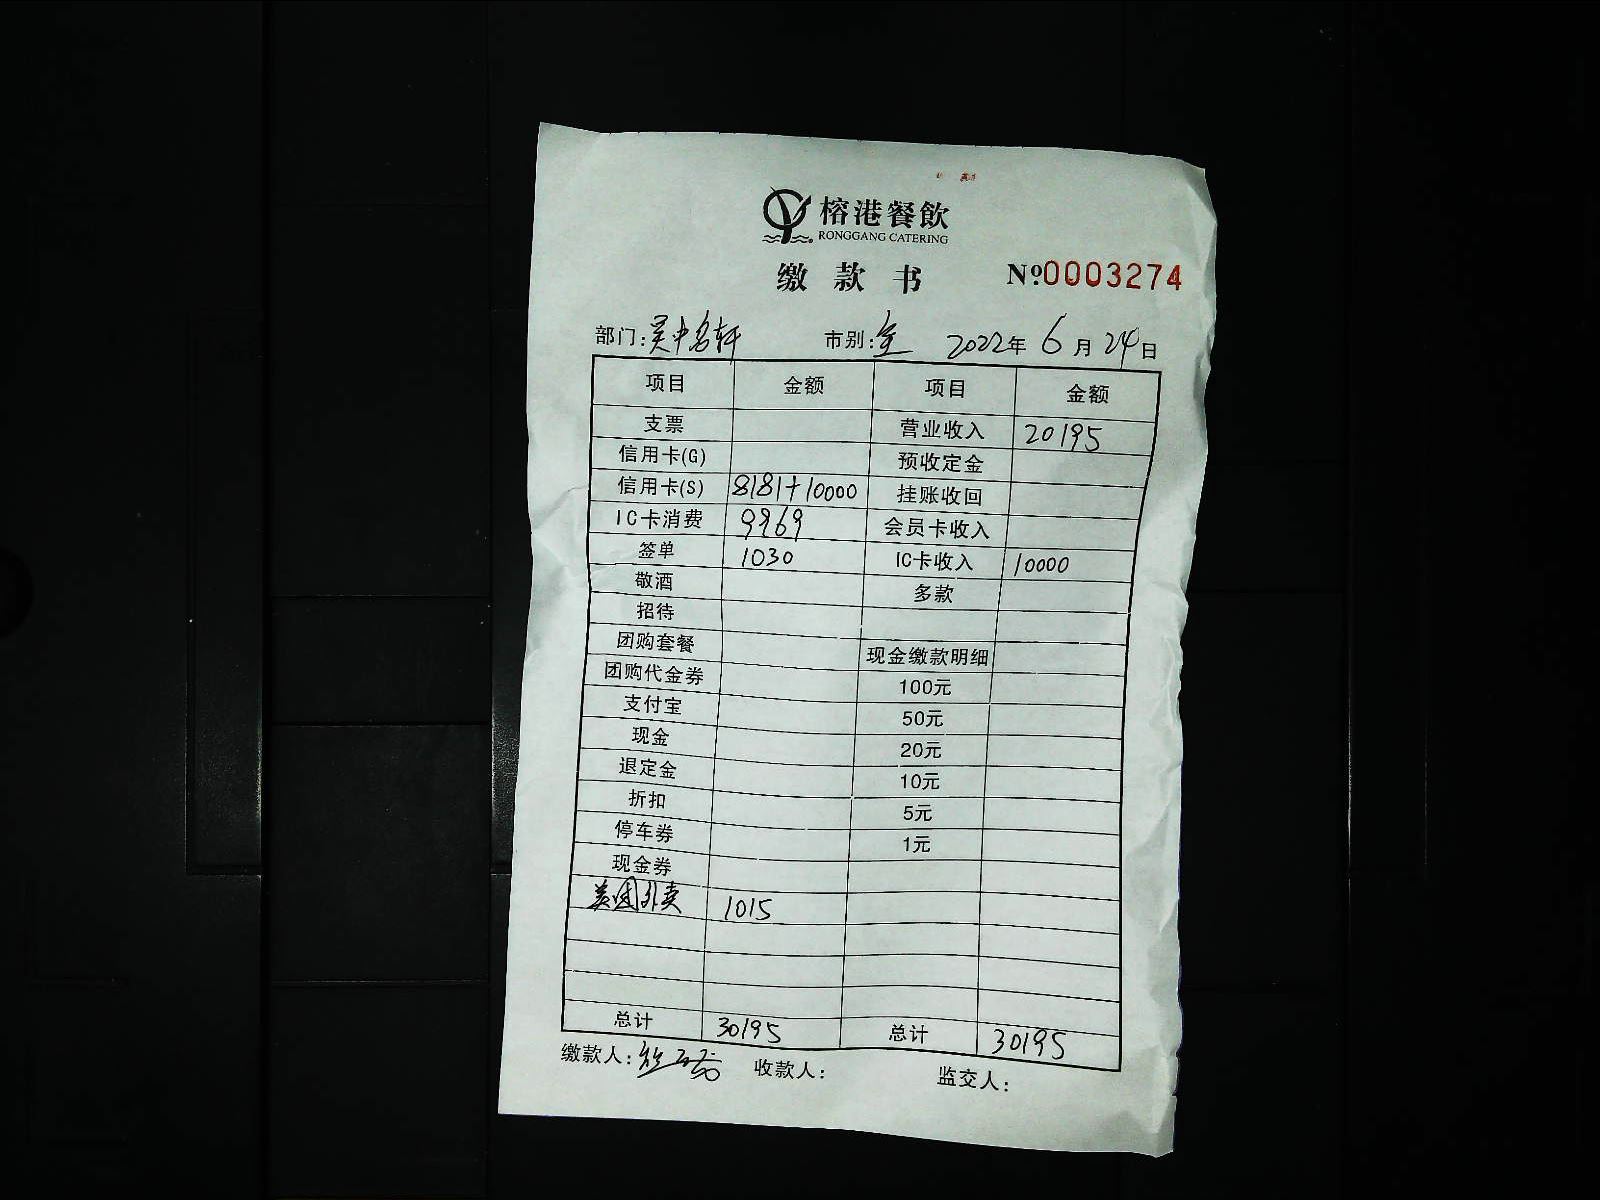 榕港餐飲
RONGGANG CATERING
缴款书 №0003274
部门:吴中名轩 市别:全 2022年6月24日
项目 金额 项目 金额
支票 营业收入 20195
信用卡(G) 预收定金
信用卡(S) 8181+10000 挂账收回
IC卡消费 9969 会员卡收入
签单 1030 IC卡收入 10000
敬酒 多款
招待
团购套餐 现金缴款明细
团购代金券 100元
支付宝 50元
现金 20元
退定金 10元
折扣 5元
停车券 1元
现金券
美团外卖 1015
总计 30195 总计 30195
缴款人: 收款人: 监交人: